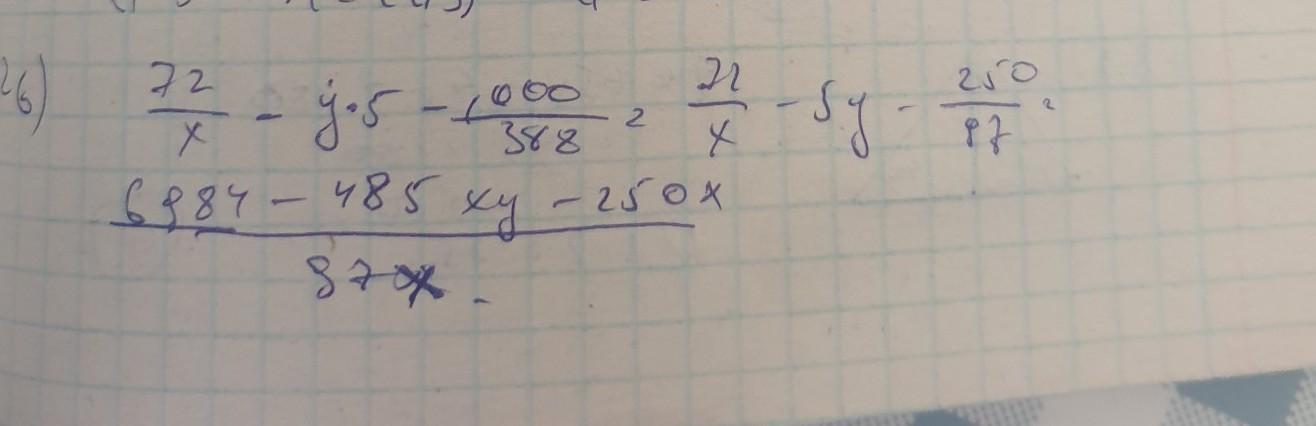 26) 72/x - y·5 - 1000/388 = 72/x - 5y - 250/97 =
6984 - 485xy - 250x / 97x.